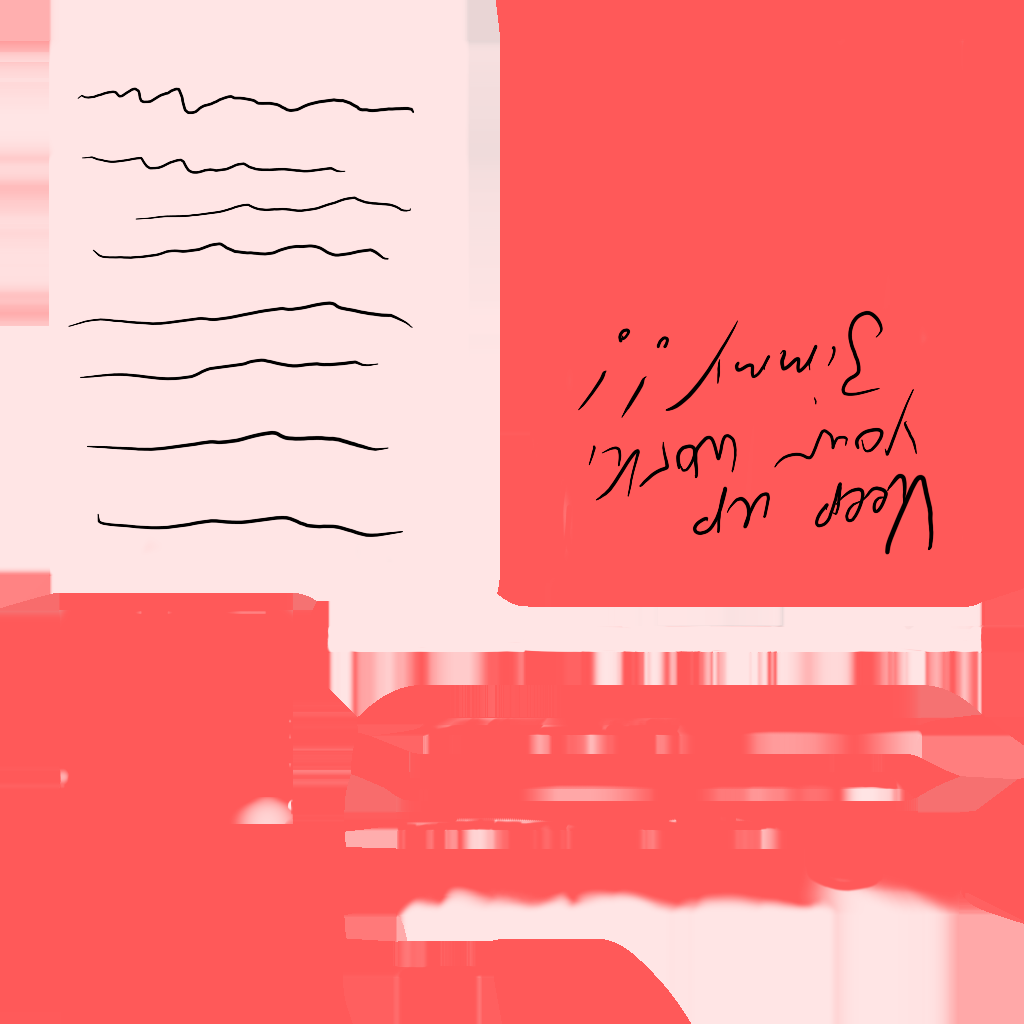 Keep up
your work,
Jimmy!!